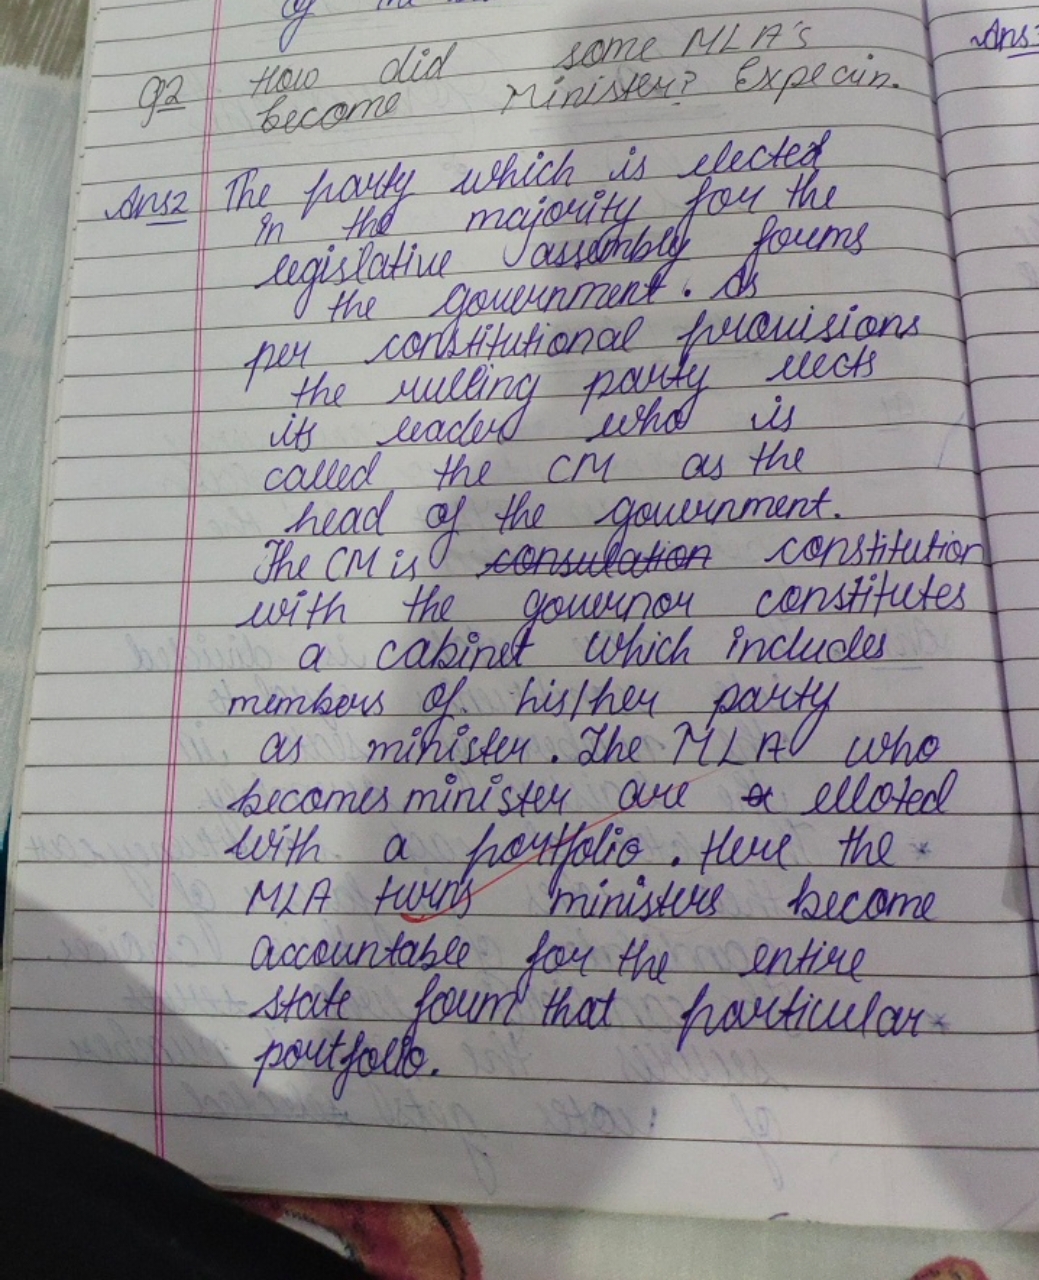 of the
Q2 How did some MLA's
become Minister? Expecin.
Ans2 The party which is elected
in the majority for the
legislative assembly forms
the government. As
per constitutional provisions
the rulling party elects
its leader who is
called the CM as the
head of the government.
The CM is consulation constitution
with the governor constitutes
a cabinet which includes
members of his/her party
as minister. The MLA who
becomes minister are a elloted
with a portfolio. Here the
MLA turns ministers become
accountable for the entire
state foum that particular
portfolio.
Ans: